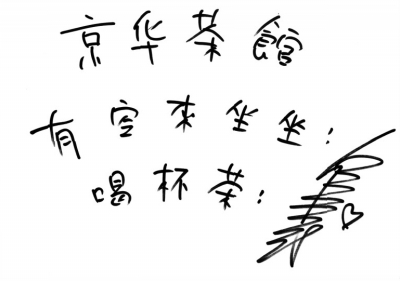 京华茶館
有空来坐坐：
喝杯茶：